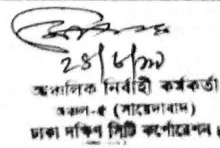 ২৪/৮/২০
আঞ্চলিক নির্বাহী কর্মকর্তা
অঞ্চল-৫ (সায়েদাবাদ)
ঢাকা দক্ষিণ সিটি কর্পোরেশন।